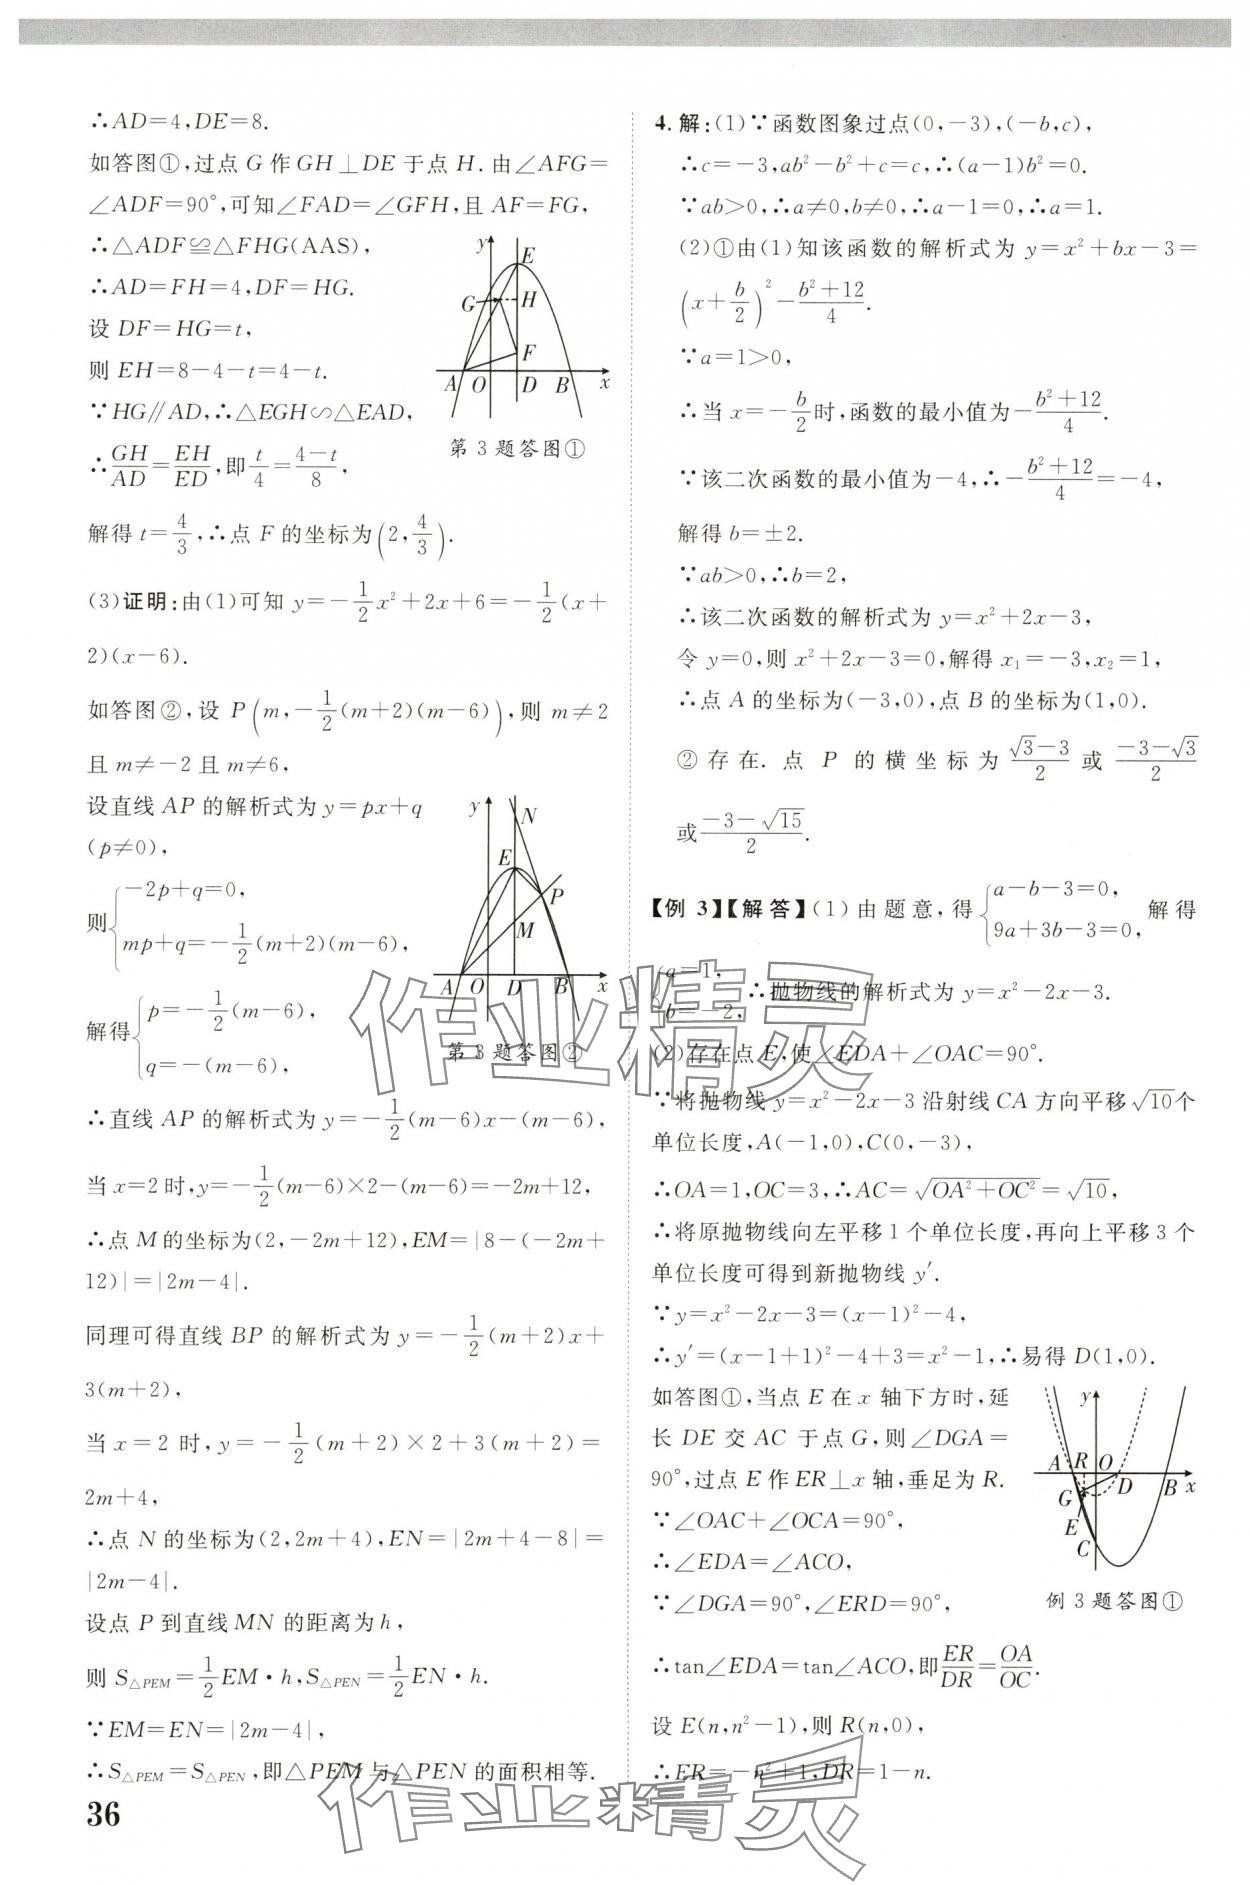 ∴AD=4,DE=8.
如答图①,过点 G 作 GH⊥DE 于点 H. 由∠AFG=
∠ADF=90°,可知∠FAD=∠GFH,且 AF=FG,
∴△ADF≌△FHG(AAS),
∴AD=FH=4,DF=HG.
设 DF=HG=t,
则 EH=8-4-t=4-t.
∵HG∥AD,∴△EGH∽△EAD,
∴GH/AD=EH/ED,即t/4=(4-t)/8,
y
E
G
H
F
A
O
D
B
x
第 3 题答图①
解得 t=4/3,∴点 F 的坐标为(2,4/3).
(3)证明:由(1)可知 y=-1/2x²+2x+6=-1/2(x+
2)(x-6).
如答图②,设 P(m,-1/2(m+2)(m-6)),则 m≠2
且 m≠-2 且 m≠6,
设直线 AP 的解析式为 y=px+q
(p≠0),
则{-2p+q=0,
mp+q=-1/2(m+2)(m-6),
解得{p=-1/2(m-6),
q=-(m-6),
y
N
E
P
M
A
O
D
B
x
第 3 题答图②
∴直线 AP 的解析式为 y=-1/2(m-6)x-(m-6),
当 x=2 时,y=-1/2(m-6)×2-(m-6)=-2m+12,
∴点 M 的坐标为(2,-2m+12),EM=|8-(-2m+
12)|=|2m-4|.
同理可得直线 BP 的解析式为 y=-1/2(m+2)x+
3(m+2),
当 x=2 时,y=-1/2(m+2)×2+3(m+2)=
2m+4,
∴点 N 的坐标为(2,2m+4),EN=|2m+4-8|=
|2m-4|.
设点 P 到直线 MN 的距离为 h,
则 S△PEM=1/2EM·h,S△PEN=1/2EN·h.
∵EM=EN=|2m-4|,
∴S△PEM=S△PEN,即△PEM与△PEN 的面积相等.
36
4. 解:(1)∵函数图象过点(0,-3),(-b,c),
∴c=-3,ab²-b²+c=c,∴(a-1)b²=0.
∵ab>0,∴a≠0,b≠0,∴a-1=0,∴a=1.
(2)①由(1)知该函数的解析式为 y=x²+bx-3=
(x+b/2)²-(b²+12)/4.
∵a=1>0,
∴当 x=-b/2时,函数的最小值为-(b²+12)/4.
∵该二次函数的最小值为-4,∴-(b²+12)/4=-4,
解得 b=±2.
∵ab>0,∴b=2,
∴该二次函数的解析式为 y=x²+2x-3,
令 y=0,则 x²+2x-3=0,解得 x₁=-3,x₂=1,
∴点 A 的坐标为(-3,0),点 B 的坐标为(1,0).
②存在. 点 P 的横坐标为(√3-3)/2或(-3-√3)/2
或(-3-√15)/2.
【例 3】【解答】(1)由题意,得{a-b-3=0,
9a+3b-3=0, 解得
{a=1,
b=-2, ∴抛物线的解析式为 y=x²-2x-3.
(2)存在点 E,使∠EDA+∠OAC=90°.
∵将抛物线 y=x²-2x-3 沿射线 CA 方向平移√10个
单位长度,A(-1,0),C(0,-3),
∴OA=1,OC=3,∴AC=√(OA²+OC²)=√10,
∴将原抛物线向左平移 1 个单位长度,再向上平移 3 个
单位长度可得到新抛物线 y′.
∵y=x²-2x-3=(x-1)²-4,
∴y′=(x-1+1)²-4+3=x²-1,∴易得 D(1,0).
如答图①,当点 E 在 x 轴下方时,延
长 DE 交 AC 于点 G,则∠DGA=
90°,过点 E 作 ER⊥x 轴,垂足为 R.
∵∠OAC+∠OCA=90°,
∴∠EDA=∠ACO,
∵∠DGA=90°,∠ERD=90°,
y
A
R
O
D
B
x
G
E
C
例 3 题答图①
∴tan∠EDA=tan∠ACO,即ER/DR=OA/OC.
设 E(n,n²-1),则 R(n,0),
∴ER=-n²+1,DR=1-n.
作业精灵
作业精灵